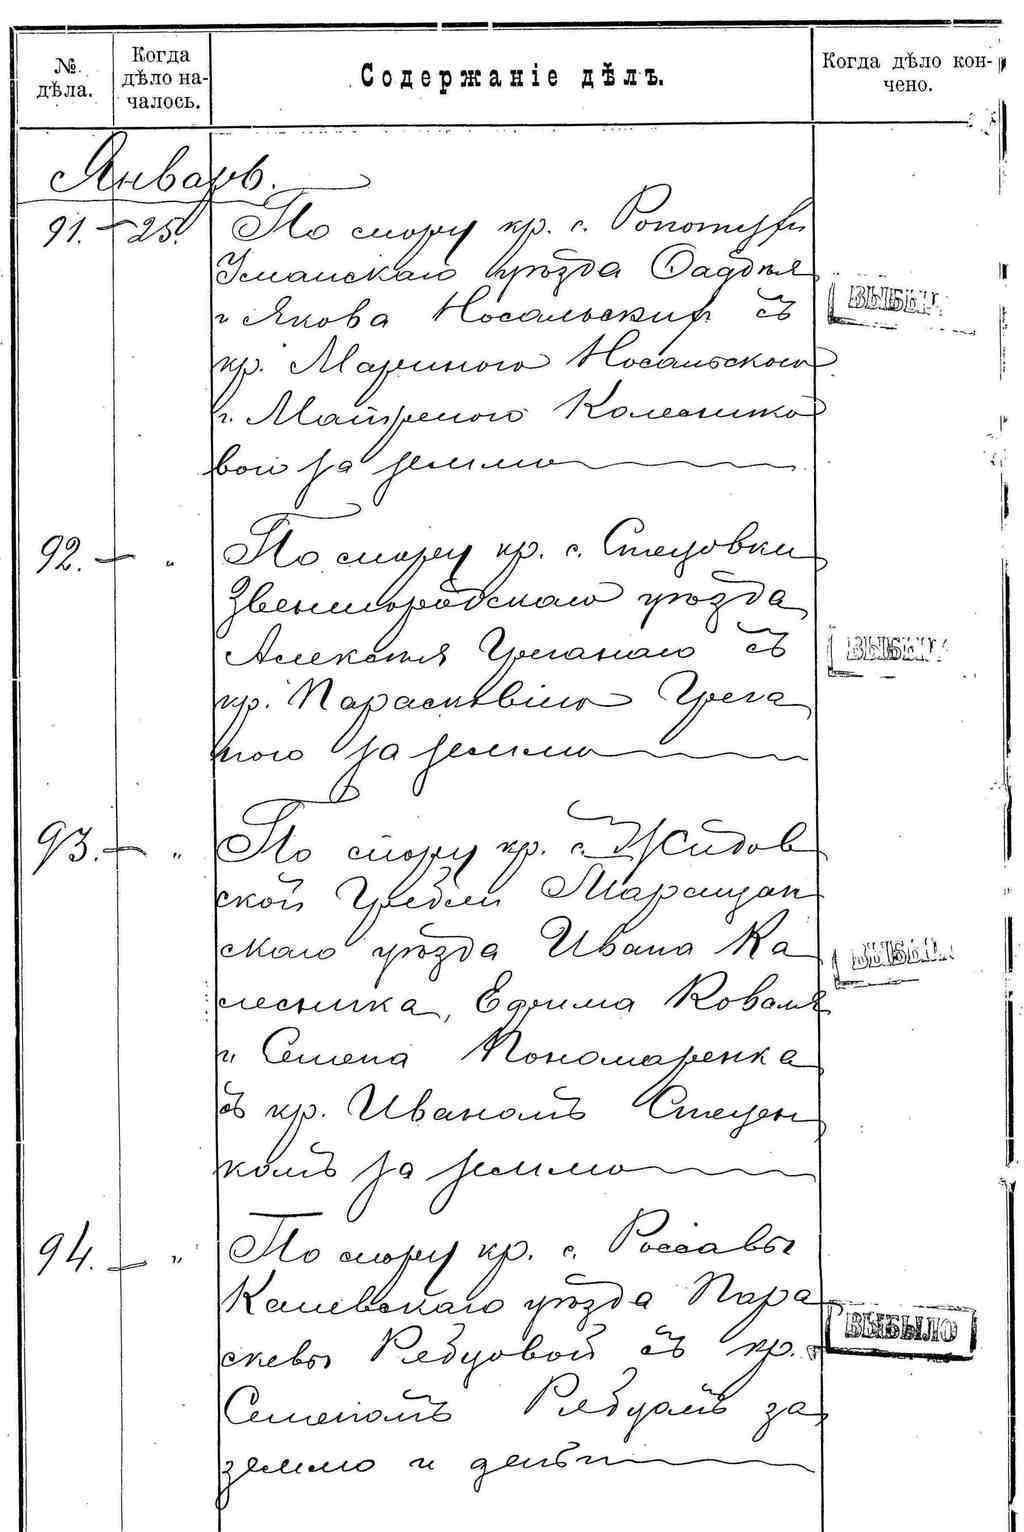 № дѣла.
Когда дѣло началось.
Содержаніе дѣлъ.
Когда дѣло кончено.
Январь.
91. — 25. По спору кр. с. Ропотухи
Уманскаго уѣзда Фадѣя
и Якова Носальских съ
кр. Мариною Носальскою
и Матреною Колеснико
вой за землю
ВЫБЫЛО
92. — " По спору кр. с. Стецовки
Звенигородскаго уѣзда
Алексѣя Цыганаго съ
кр. Парасковіею
за землю
ВЫБЫЛО
93. — " По спору кр. с. Жидов
ской Гребли Таращан
скаго уѣзда Ивана Ка
лесника, Ефима Коваля
и Семена Пономаренка
съ кр. Иваномъ Стецен
комъ за землю
ВЫБЫЛО
94. — " По спору кр. с. Россавы
Каневскаго уѣзда Пара
скевы Рябцовой съ кр.
Семеномъ Рябцомъ за
землю и деньги
ВЫБЫЛО